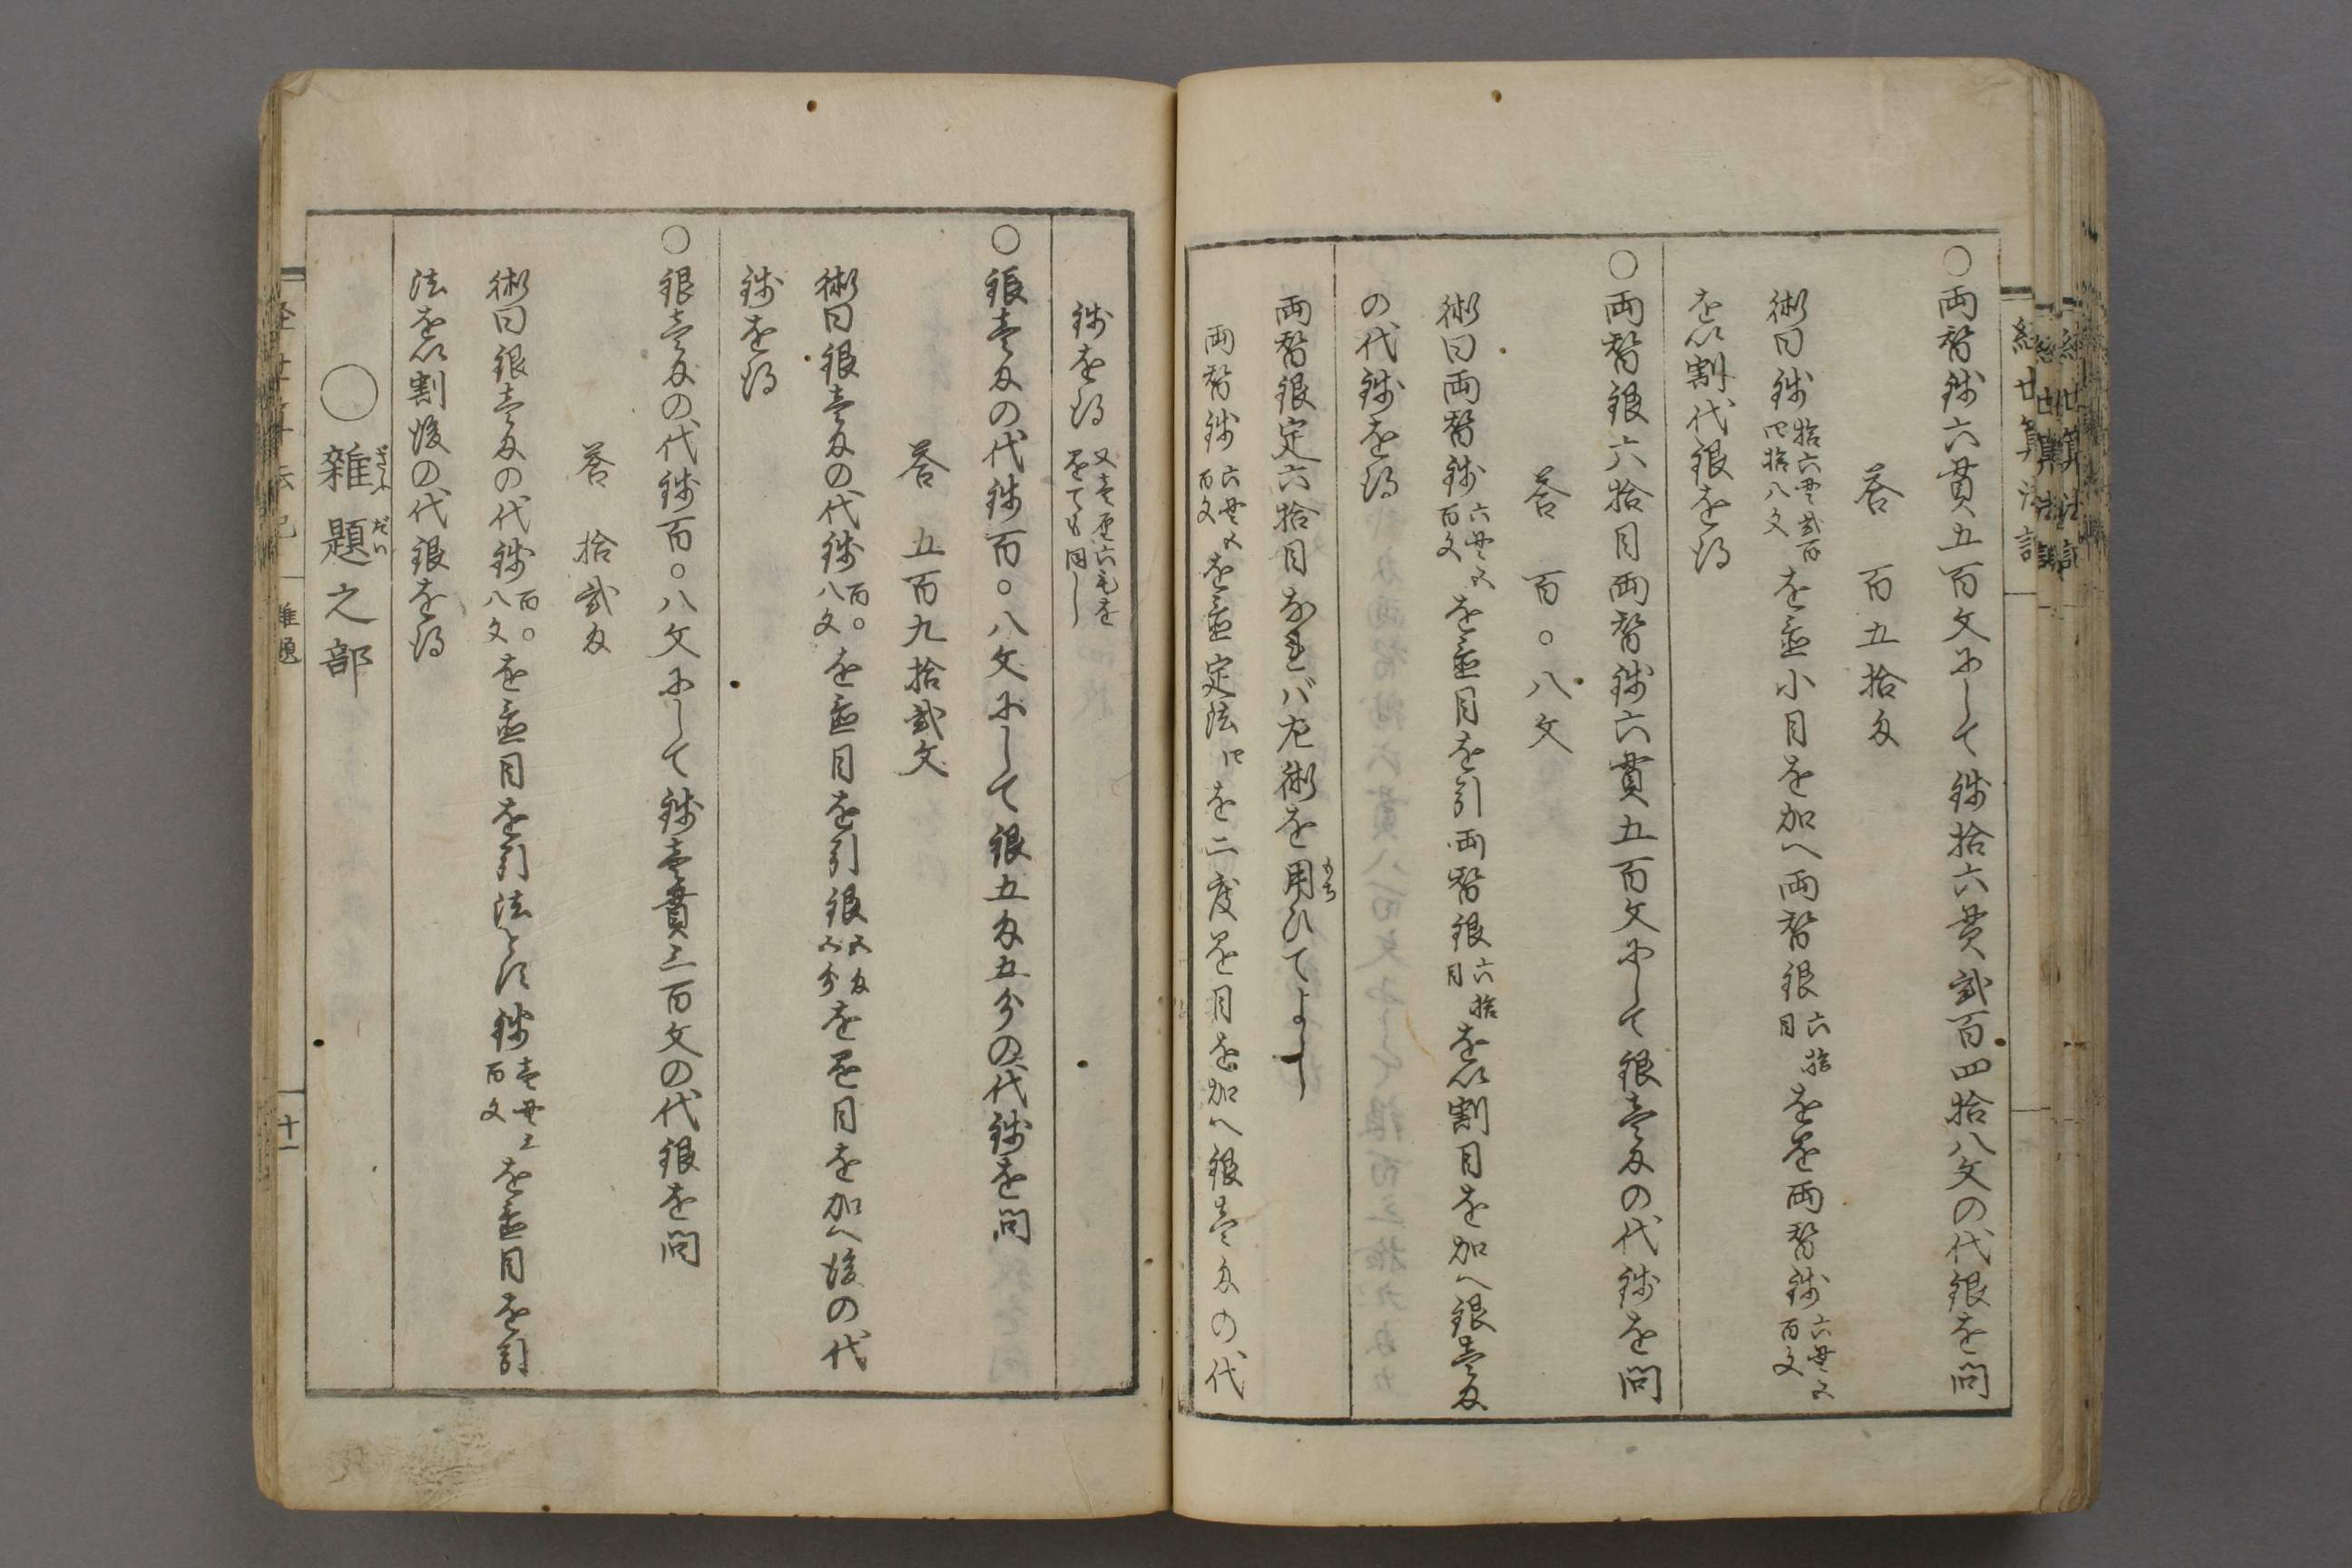 ○両替銭六貫五百文にして銭拾六貫弐百四拾八文の代銀を問
答 百五拾匁
術曰銭拾六貫弐百四拾八文を置小目を加へ両替銀六拾目をを両替銭六貫五百文
を以割代銀を得
○両替銀六拾目両替銭六貫五百文にして銀壱匁の代銭を問
答 百〇八文
術曰両替銭六貫五百文を置目を引両替銀六拾目を以割目を加へ銀壱匁
の代銭を得
両替銀定六拾目なれバ左術を用ひてよし
もち
両替銭六貫五百文を置定法を二度目を加へ銀壱匁の代
銭を得
○銀壱匁の代銭百〇八文にして銀五匁五分の代銭を問
答 五百九拾弐文
術曰銀壱匁の代銭百〇八文を置目を引銀五匁五分を目を加へ後の代
銭を得
○銀壱匁の代銭百〇八文にして銭壱貫三百文の代銀を問
答 拾弐匁
術曰銀壱匁の代銭百〇八文を置目を引法とす銭壱貫三百文を置目を引
法を以割後の代銀を得
○雑題之部
ざふ だい
雑題
十一